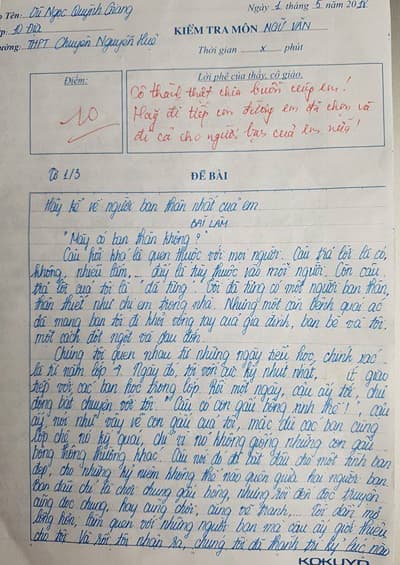 Họ Tên: Cũ Ngọc Quỳnh Giang
Ngày 1 tháng 5 năm 20
Lớp: 10 Địa
KIỂM TRA MÔN NGỮ VĂN
Trường: THPT Chuyên Nguyễn Huệ
Thời gian x phút
Điểm:
10
Lời phê của thầy, cô giáo
Cô thành thật chia buồn cùng em!
Hãy đi tiếp con đường em đã chọn và
đi cả cho người bạn của em nữa!
Từ 1/3
ĐỀ BÀI
Hãy kể về người bạn thân nhất của em
BÀI LÀM
"Mày có bạn thân không?"
Câu hỏi khá là quen thuộc với mọi người. Câu trả lời là có,
không, nhiều lắm,... đấy là tùy thuộc vào mỗi người. Còn câu
trả lời của tôi là "đã từng". Tôi đã từng có một người bạn thân,
thân thiết như chị em trong nhà. Nhưng một căn bệnh quái ác
đã mang bạn tôi đi khỏi vòng tay của gia đình, bạn bè và tôi
một cách đột ngột và đau đớn.
Chúng tôi quen nhau từ những ngày tiểu học, chính xác
là từ năm lớp 4. Ngày đó, tôi vốn cực kỳ nhút nhát, ít giao
tiếp với các bạn học trong lớp. Rồi một ngày, cậu ấy tới, chủ
động bắt chuyện với tôi. "Cậu có con gấu bông xinh thế!", cậu
ấy nói như vậy về con gấu của tôi, mặc dù các bạn cùng
lớp chê nó kỳ quái, chỉ vì nó không giống những con gấu
bông thông thường khác. Câu nói đó đã bắt đầu cho một tình bạn
đẹp, cho những kỷ niệm không thể nào quên giữa hai người bạn.
Ban đầu chỉ là chơi chung gấu bông, nhưng rồi đến đọc truyện
cũng đọc chung, hay cùng chơi, cùng vẽ tranh,... Tôi dần mở
lòng hơn, làm quen với những người bạn mà cậu ấy giới thiệu
cho tôi. Và rồi tôi nhận ra, chúng tôi đã thành tri kỷ lúc nào
KOKUYO